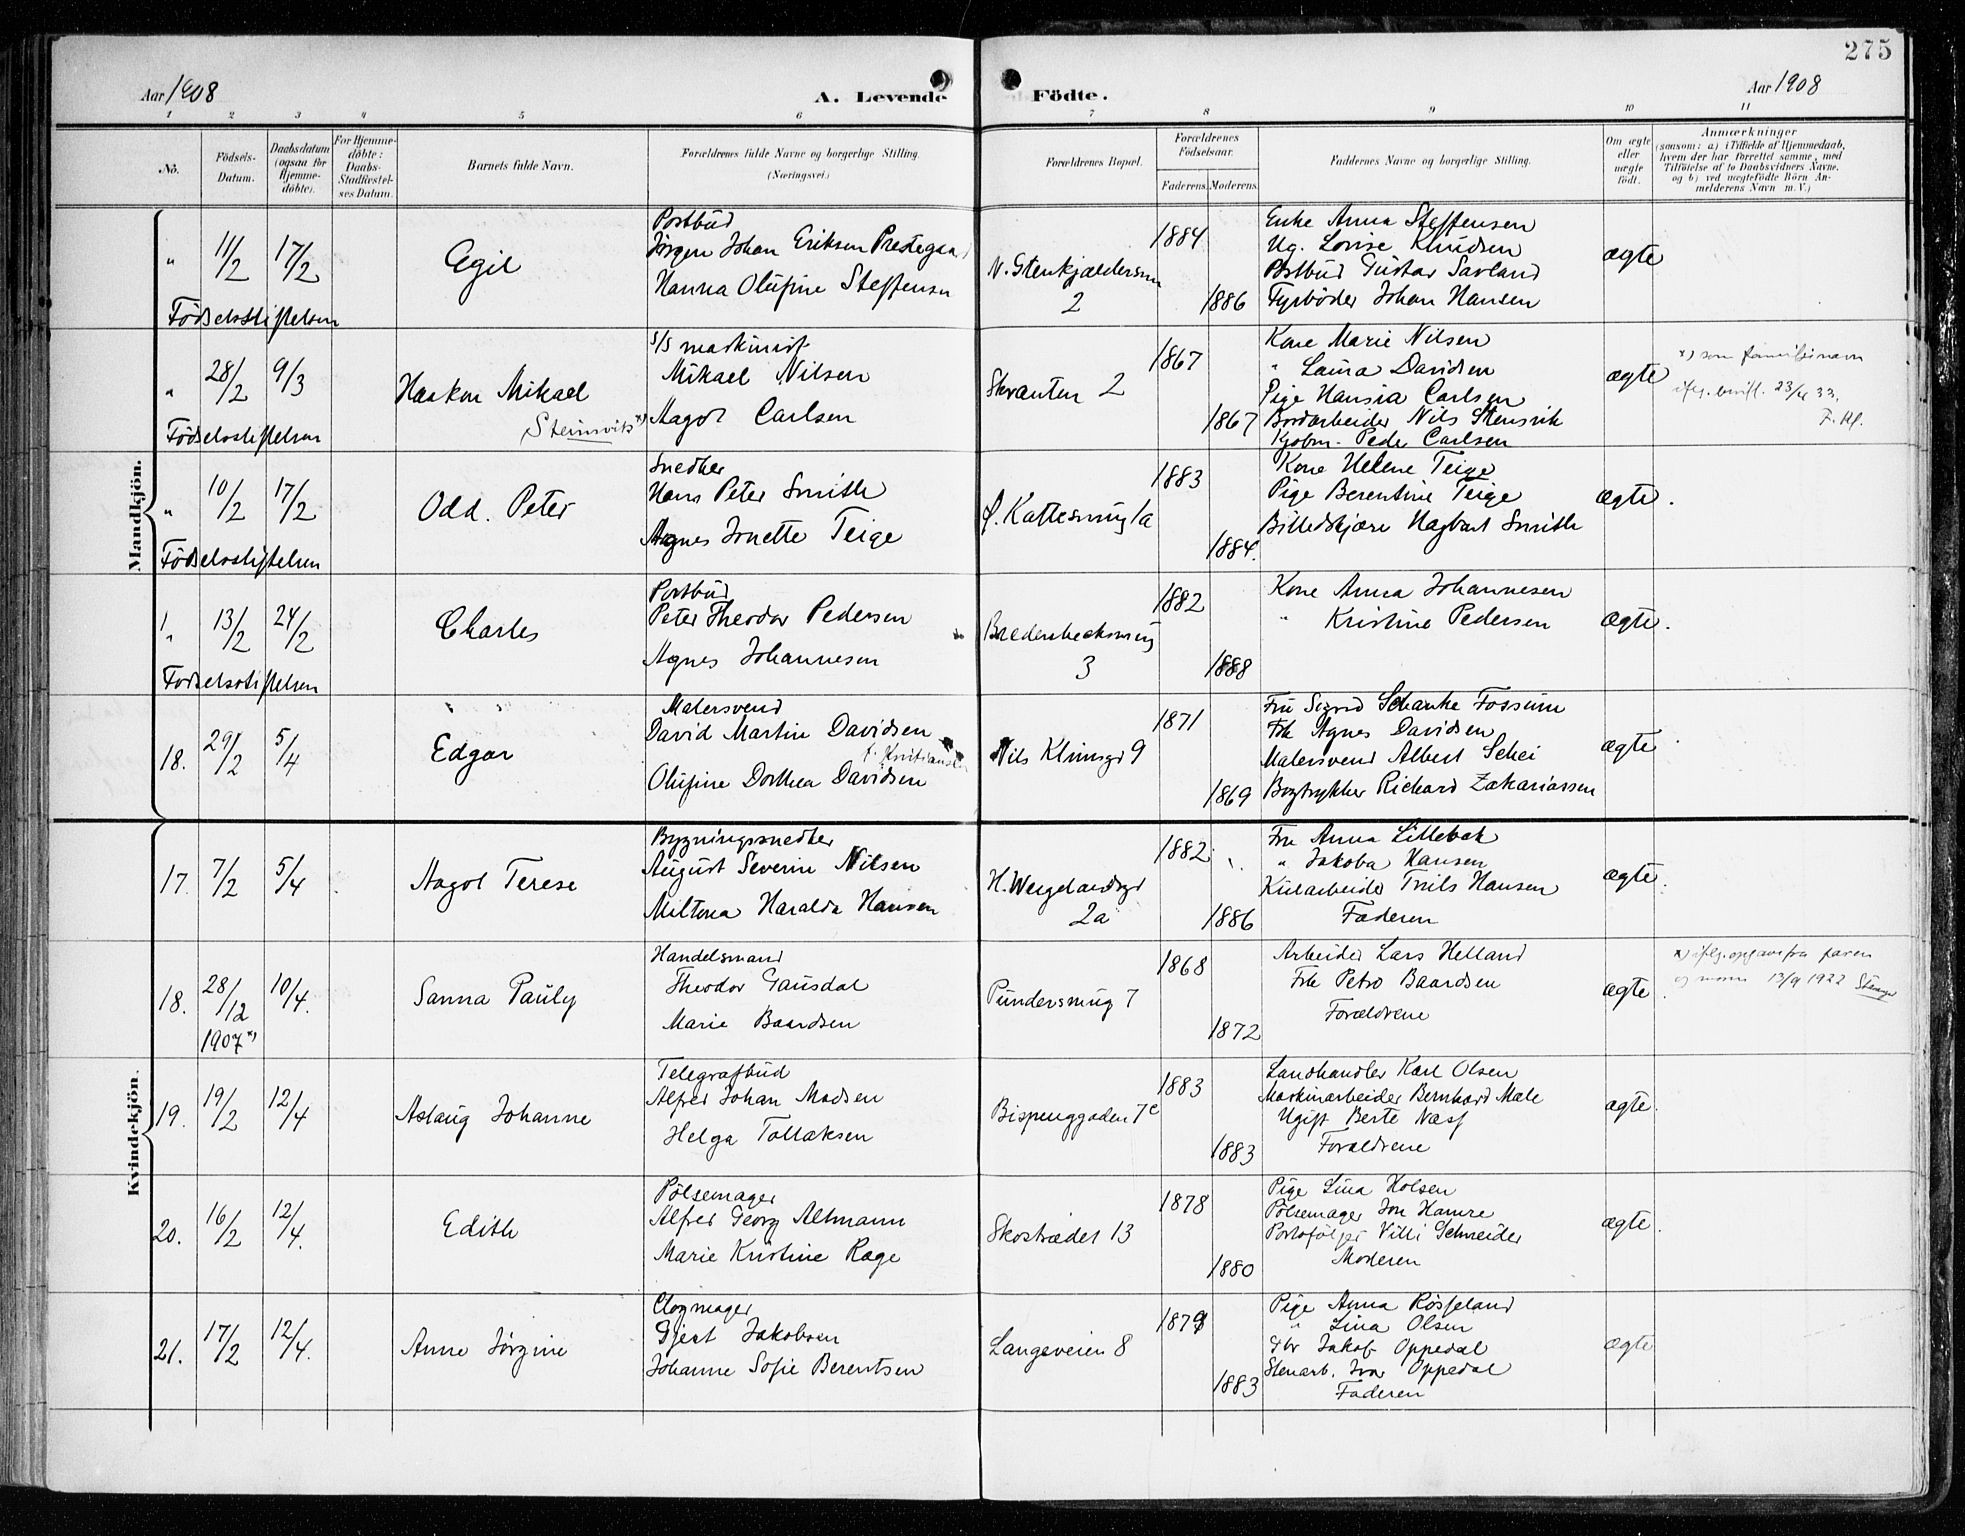 275
Aar 1908
A. Levende Födte.
Aar 1908
1 2 3 4 5 6 7 8 9 10 11
No.
Födsels-Datum.
Daabsdatum (ogsaa for Hjemme-döbte).
For Hjemme-döbte: Daabs-Stadfæstel-ses Datum.
Barnets fulde Navn.
Forældrenes fulde Navne og borgerlige Stilling.
(Næringsvei.)
Forældrenes Bopæl.
Forældrenes Födselsaar.
Faderens. Moderens.
Faddernes Navne og borgerlige Stilling.
Om ægte eller uægte födt.
Anmærkninger
(saasom: a) i Tilfælde af Hjemmedaab,
hvem der har forrettet samme, med
Tilföielse af to Daabsvidners Navne,
og b) ved uægtefödte Börn An-
melderens Navn m. V.)
Mandkjön.
" 11/2 17/2
Egil
Postbud
Jørgen Johan Eriksen Prestegaa
Hanna Olufine Steffensen
N. Stenkjeldersm
2
1884
1886
Enke Anna Steffensen
Ug. Lovise Knudsen
Postbud Gustav Savland
Fyrbøder Johan Hansen
ægte
Fødselsstiftelsen
" 28/2 9/3
Haakon Mikael
Steinsvik x)
S/S maskinist
Mikael Nilsen
Aagot Carlsen
Skranten 2
1867
1867
Kone Marie Nilsen
" Laura Davidsen
Pige Hansia Carlsen
Bordarbeider Nils Stensvik
Kjøbm. Peder Carlsen
ægte
x) som familienavn
iflg. bevill. 23/4 33.
Fødselsstiftelsen
" 10/2 17/2
Odd. Peter
Snedker
Hans Peter Smith
Agnes Jonette Teige
Ø. Kattesmug 1a
1883
1884.
Kone Helene Teige
Pige Berentine Teige
Billedskjære Hagbart Smith
ægte.
Fødselsstiftelsen
" 13/2 24/2
Charles
Postbud
Peter Theodor Pedersen
Agnes Johannesen
Bredenbecksmug
3
1882
1888
Kone Anna Johannesen
" Kristine Pedersen
ægte.
Fødselsstiftelsen
18. 29/2 5/4
Edgar
Malersvend
David Martin Davidsen
Olufine Dorthea Davidsen
Nils Klimsgd 9
1871
1869
Fru Sigrid Schanke Fossum
Frk Agnes Davidsen
Malersvend Albert Schei
Bogtrykker Richard Zakariassen
ægte
Kvindekjön.
17. 7/2 5/4
Aagot Terese
Bygningssnedker
August Severin Nilsen
Miltona Haralda Hansen
H. Wergelandsgd
2a
1882
1886
Fru Anna Lillebak
" Jakoba Hansen
Kularbeider Truls Hansen
Faderen
ægte.
18. 28/12 1907 x) 10/4.
Sanna Pauly
Handelsmand
Theodor Gausdal
Marie Baardsen
Pundersmug 7
1868
1872
Arbeider Lars Helland
Frk Petra Baardsen
Forældrene
ægte.
x) iflg. opgave fra faren
og moren 13/9 1922
19. 19/2 12/4
Aslaug Johanne
Telegrafbud
Alfred Johan Madsen
Helga Tollaksen
Bispenggaden 7c
1883
1883
Landhandler Karl Olsen
Maskinarbeider Bernhard Male
Ugift Berte Næss
Forældrene
ægte.
20. 16/2 12/4.
Edith
Pølsemager
Alfred Georg Altmann
Marie Kristine Rage
Skostrædet 13
1878
1880
Pige Lina Holsen
Pølsemager Jon Hamre
Portoføljer Villi Schneider
Moderen
ægte.
21. 17/2 12/4.
Anne Jørgine
Clogmager
Gjert Jakobsen
Johanne Sofie Berentsen
Langeveien 8
1879
1883
Pige Anna Røsseland
" Lina Olsen
Gbr Jakob Oppedal
Stenarb. Ivar Oppedal
Faderen
ægte